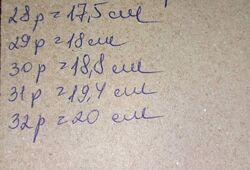 28р = 17,5 см
29р = 18 см
30р = 18,8 см
31р = 19,4 см
32р = 20 см